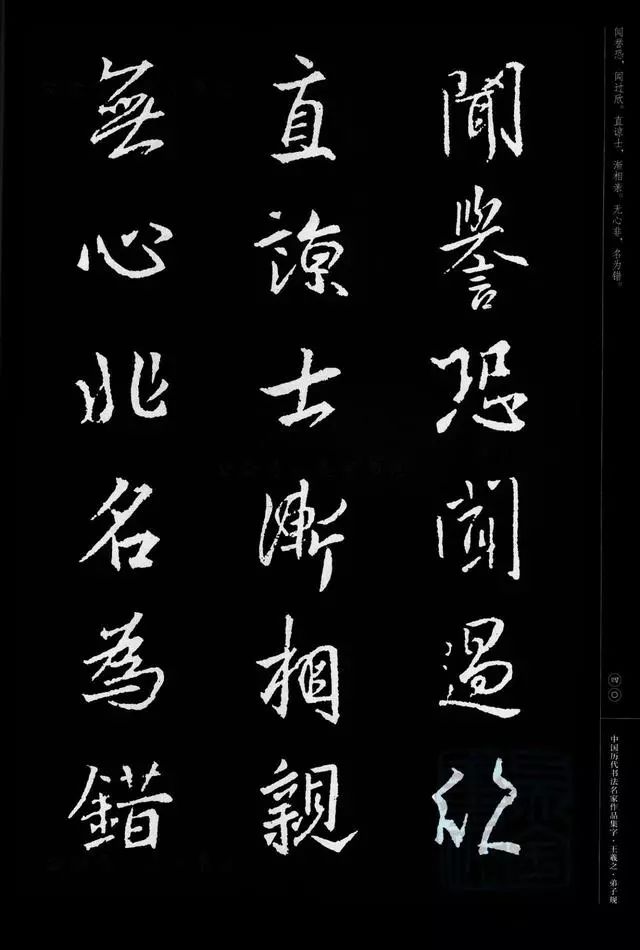 闻誉恐，闻过欣。直谅士，渐相亲。无心非，名为错。
聞譽恐聞過欣
直諒士漸相親
無心非名為錯
四〇
中国历代书法名家作品集字·王羲之·弟子规